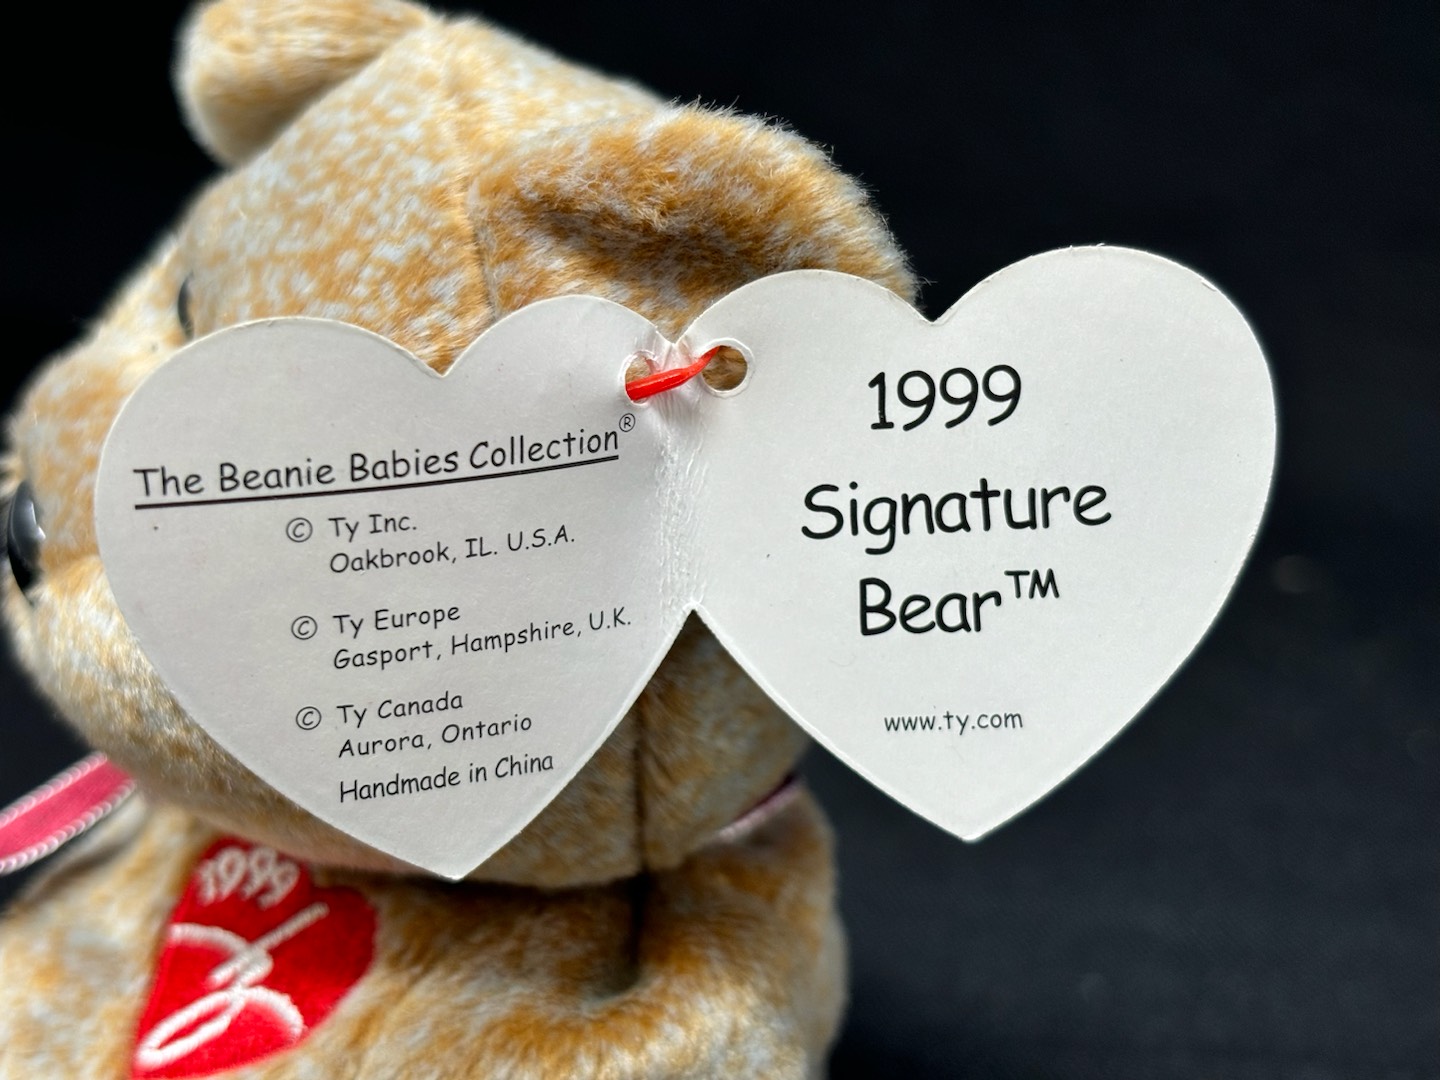 The Beanie Babies Collection®
© Ty Inc.
Oakbrook, IL. U.S.A.
© Ty Europe
Gasport, Hampshire, U.K.
© Ty Canada
Aurora, Ontario
Handmade in China
1999
Signature
Bear™
www.ty.com
1999